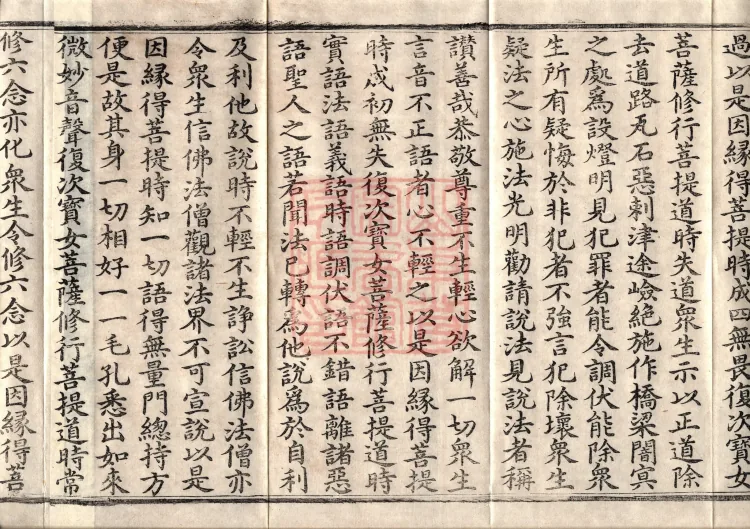 過以是因緣得菩提時成四無畏復次寶女
菩薩修行菩提道時失道衆生示以正道除
去道路瓦石惡刺津途嶮絶施作橋梁闇冥
之處爲設燈明見犯罪者能令調伏能除衆
生所有疑悔於非犯者不強言犯除壞衆生
疑法之心施法光明勸請說法見說法者稱
讃善哉恭敬尊重不生輕心欲解一切衆生
言音不正語者心不輕之以是因緣得菩提
時成初無失復次寶女菩薩修行菩提道時
實語法語義語時語調伏語不錯語離諸惡
語聖人之語若聞法已轉爲他說爲於自利
及利他故說時不輕不生諍訟信佛法僧亦
令衆生信佛法僧觀諸法界不可宣說以是
因緣得菩提時知一切語得無量門總持方
便是故其身一切相好一一毛孔悉出如來
微妙音聲復次寶女菩薩修行菩提道時常
修六念亦化衆生令修六念以是因緣得菩